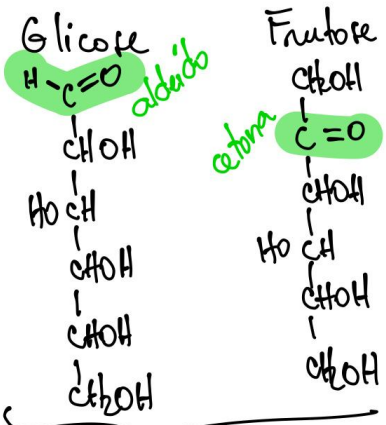 Glicose
H-C=O
aldeído
CHOH
HO CH
CHOH
CHOH
CH2OH
Frutose
CH2OH
cetona
C=O
CHOH
HO CH
CHOH
CH2OH